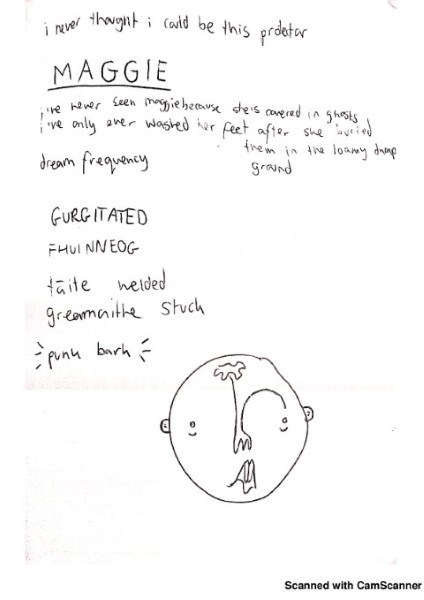 i never thought i could be this predator
MAGGIE
i've never seen maggie because she's covered in ghosts
i've only ever washed her feet after she buried
them in the loamy damp
ground
dream frequency
GURGITATED
FHUINNEOG
táite welded
greamaithe stuck
punk bark
Scanned with CamScanner